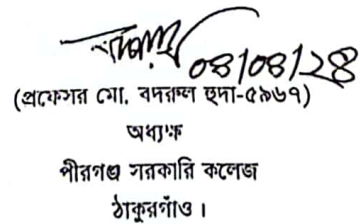 ০৪/০৪/২৪
(প্রফেসর মো. বদরুল হুদা-৫৯৬৭)
অধ্যক্ষ
পীরগঞ্জ সরকারি কলেজ
ঠাকুরগাঁও।